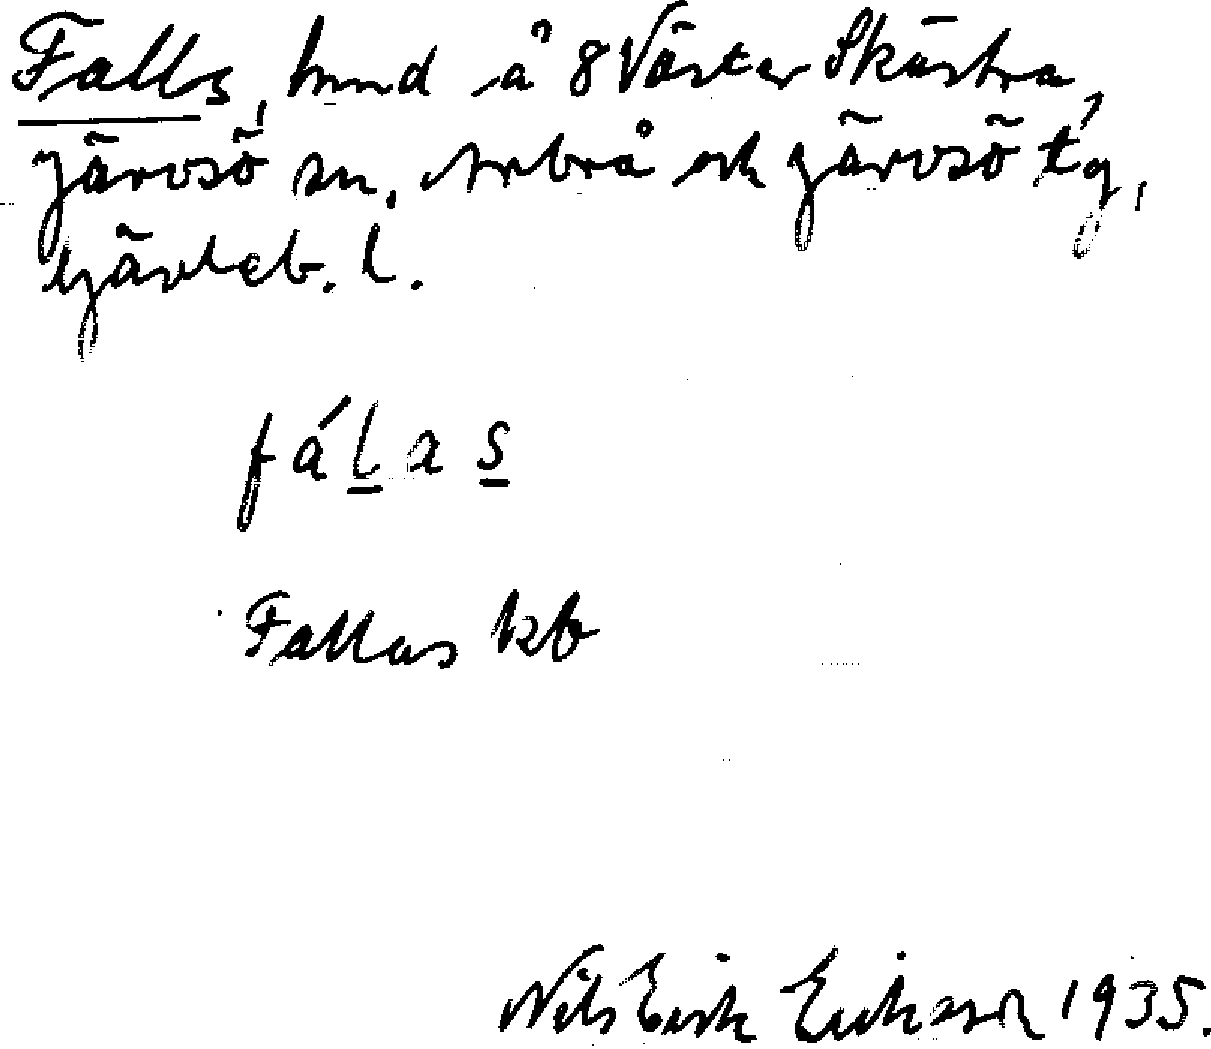 Falls, hmnd å 8 Väster Skästra,
Järvsö sn, Arbrå och Järvsö tg,
Gävleb. l.
fáḻas̲
Fallas kb
Nils Erik Eriksson 1935.